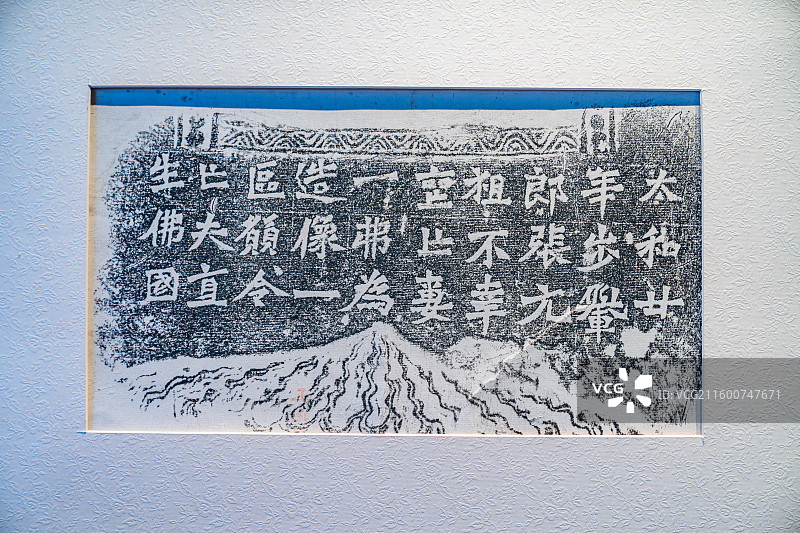 太和廿
年步轝
郎張元
祖不幸
喪亡妻
一弗為
造像一
區願令
亡夫直
生佛國
VCG
VCG211600747671